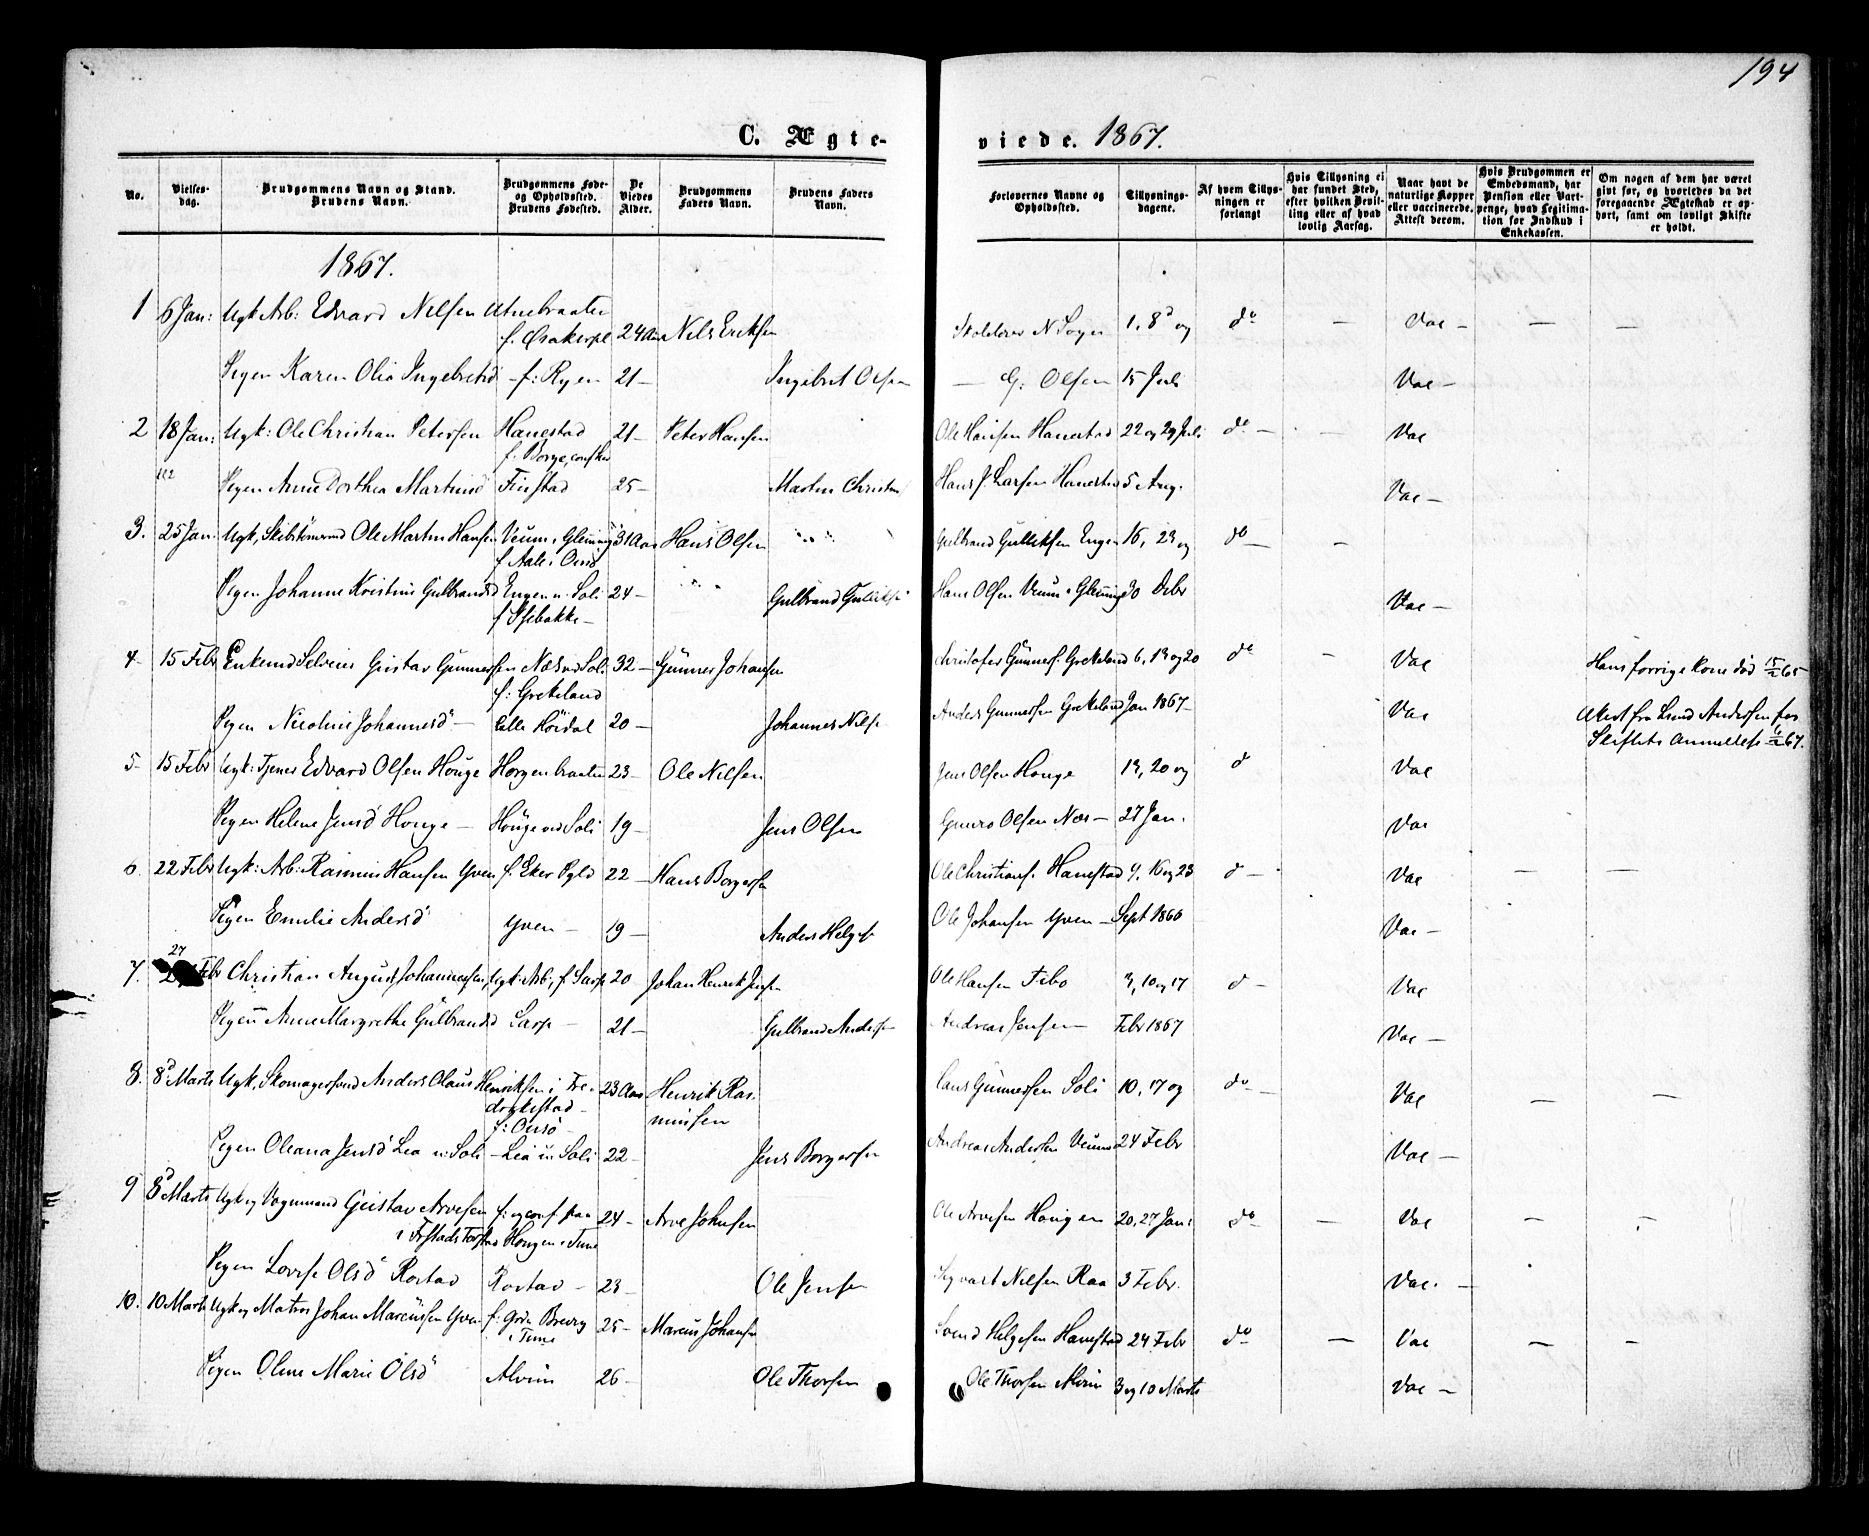 194
C. Ægte-
viede. 1867.
No.
Vielses-
dag.
Brudgommens Navn og Stand.
Brudens Navn.
Brudgommens Føde-
og Opholdssted.
Brudens Fødested.
De
Viedes
Alder.
Brudgommens
Faders Navn.
Brudens Faders
Navn.
Forlovernes Navne og
Opholdssted.
Tillysnings-
dagene.
Af hvem Tillys-
ningen er
forlangt
Hvis Tillysning ei
har fundet Sted,
efter hvilken Bevil-
ling eller af hvad
lovlig Aarsag.
Naar havt de
naturlige Kopper
eller vaccinerede.
Attest derom.
Hvis Brudgommen er
Embedsmand, har
Pension eller Vart-
penge, hvad Legitima-
tion for Indskud i
Enkekassen.
Om nogen af dem har været
gift før, og hvorledes da det
foregaaende Ægteskab er op-
hørt, samt om lovligt Skifte
er holdt.
1867.
1 6 Jan: Ugk Arb: Edvard Nilsen
24 Aar Nils Eriksen 1, 8 og do — Vac — — —
Pigen Karen Olia Ingebretsd — f: Ryen 21 — Ingebret Olsen — G: Olsen 15 Juli Vac —
2 18 Jan: Ugk: Ole Christian Petersen Hanestad 21 — Peter Hansen Ole Hansen Hanestad 22 og 29 Juli do — — Vac
f. Borge,
Pigen Anne Dorthea Martinsd Finstad 25 — Martin Hans J. Larsen Hanestad 5 Aug. Vac —
3. 25 Jan. Ugk, Ole Martin Hansen Veum i Glemmig 31 Aar Hans Olsen Gulbrand Gulliksen Engen 16, 23 og do — —
Pigen Johanne Kristine Gulbrandsd Engen u. Soli 24 — Gulbrand Hans Olsen Veum i Glemmig 30 Debr Vac —
4 15 Febr Enkemd Selveier Gustav Gunnersen Næs ved Soli 32 — Gunner Johansen Christofer Gunners. Grekeland 6, 13 og 20 do — Vac Hans forrige Kone død 15/2 65
f: Grekeland
Pigen Nicoline Johannesd — Lille Höidal 20 — Johannes Nils Anders Gunnersen Grekeland Jan 1867 — Vac
Attest fra Lund Andersen for
Skiftets
5 15 Febr Ugk: Tjener Edvard Olsen Houge Horgenbraaten 23 — Ole Nilsen Jens Olsen Houge 13, 20 og d Vac
Pigen Helene Jensd Houge — Houge ved Soli 19 — Jens Olsen Olsen Næs — 27 Jan. Vac
6. 22 Febr Ugk: Arb: Rasmus Hansen Yven f. Eker Pgld 22 — Hans Borgersen Ole Christians. Hanestad 9, 16 og 23 d — Vac — —
Pigen Emilie Andersd Yven — 19 — Anders Helges Ole Johansen Yven — Sept 1866 Vac —
7. 27 Febr Christian August Johannessen, Ugk: Arb:, f. Sarp 20 Johan Henrik Jensen Ole Hansen Febo 3, 10 og 17 d — Vac
Pigen Anne Margrethe Gulbrandsd Sarp — 21 — Gulbrand Anders Andreas Jensen — Febr 1867 Vac —
8. 8d Marts Ugk, Skomagersvend Anders Olaus Henriksen i Fre- 23 Aar Henrik Ras- Gunnersen Soli 10, 17 og do — Vac — —
drikstad — mussen
f: Onsö
Pigen Oleana Jensd Lea u: Soli — Lea u Soli 22 — Jens Borgersen Andreas Andersen Veum 24 Febr Vac —
9 8d Marts Ugk og Vognmand Gustav Arvesen f: og conf. fra 24 — Arve Johnsen Ole Arvesen Hougen 20, 27 Jan: do — Vac — —
Hougen i Tune
Pigen Lovise Olsd Rostad Rostad — 23 — Ole Jensen Sigvart Nilsen Raa 3 Febr. Vac. —
10. 10 Marts Ugk og Matros Johan Marcussen Yven f: Brevig 25 — Marcus Johansen Svend Helgesen Hanestad 24 Febr do — Vac — —
i Tune
Pigen Oline Marie Olsd Alvim 26 — Ole Thorsen Ole Thorsen Alvim 3 og 10 Marts Vac —